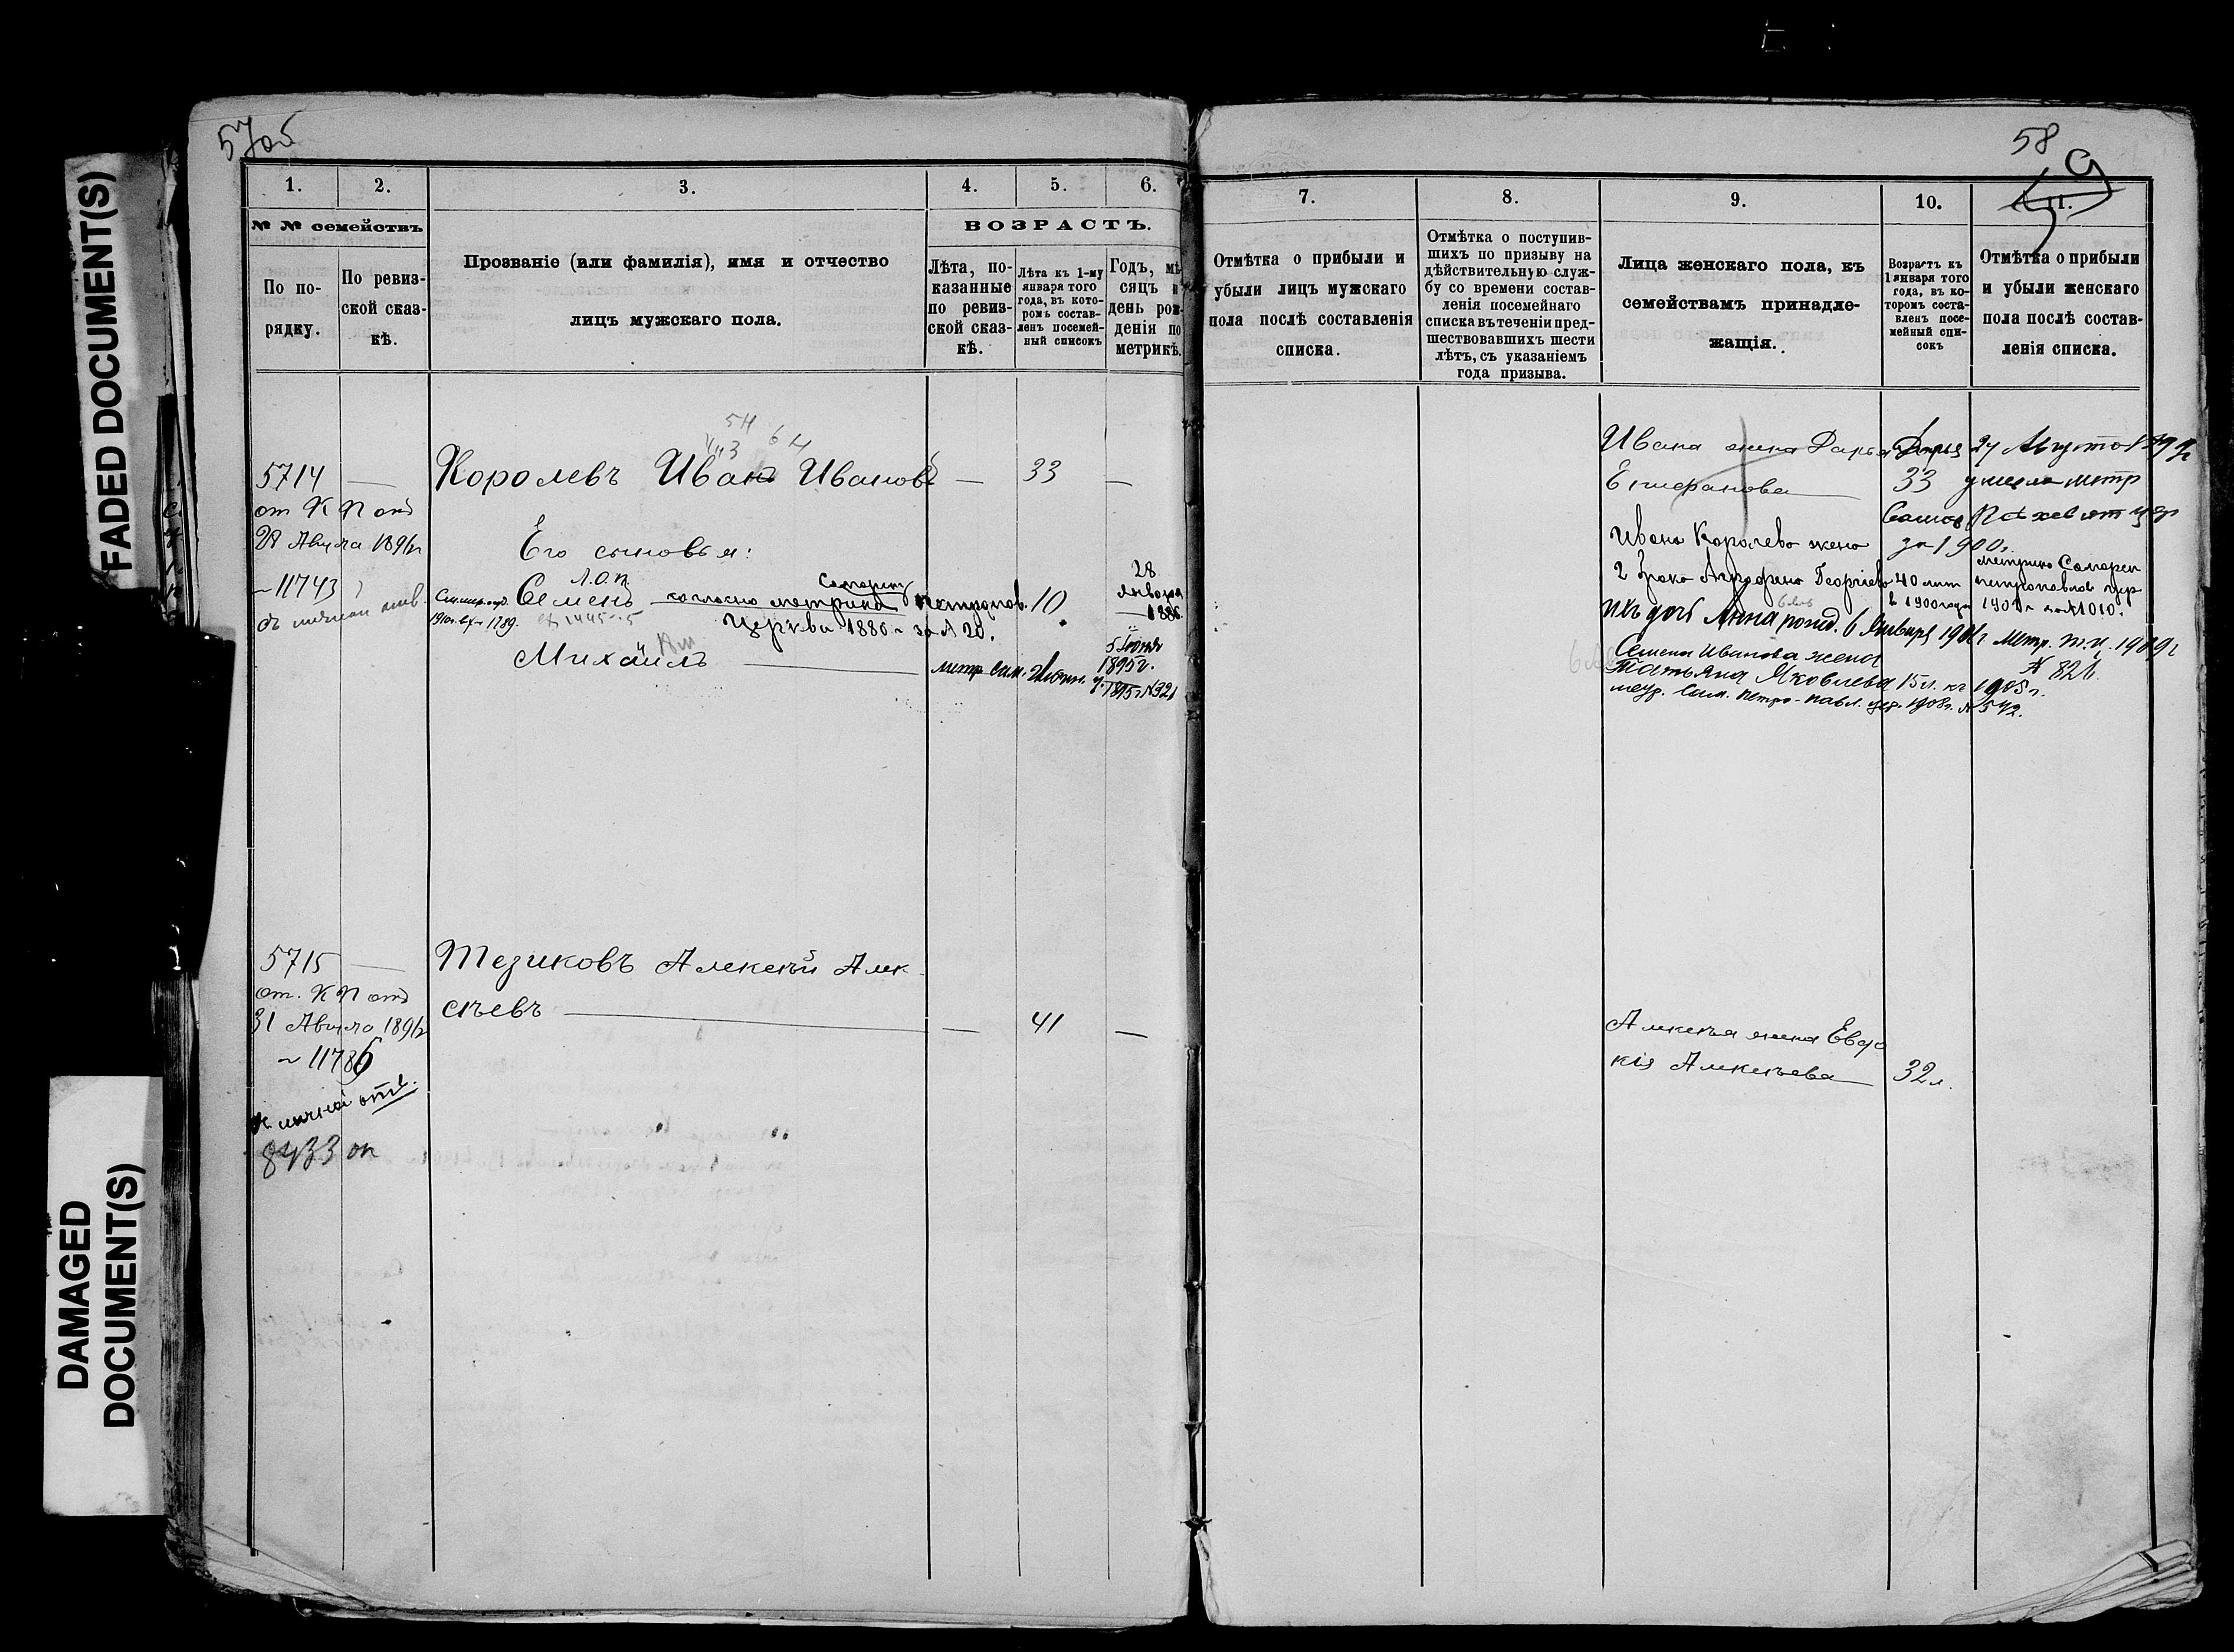 FADED DOCUMENT(S)
DAMAGED
DOCUMENT(S)
57об
1.
2.
3.
4.
5.
6.
№ № семействъ
По по-
рядку.
По ревиз-
ской сказ-
кѣ.
Прозваніе (или фамилія), имя и отчество
лицъ мужскаго пола.
ВОЗРАСТЪ.
Лѣта, по-
казанные
по ревиз-
ской сказ-
кѣ.
Лѣта къ 1-му
января того
года, въ кото-
ромъ состав-
ленъ посемей-
ный списокъ
Годъ, мѣ-
сяцъ и
день рож-
денія по
метрикѣ.
5714 —
от К П отд
28 Августа 1896г
~ 11743
54
6 4
Королевъ Иванъ Ивановъ — 33 —
Его сыновья:
Л.О.П.
Семенъ согласно метрики Самарск Петропов. 10.
Церкви 1886 г за № 20.
1910г. вх 1789.
28
Января
1886
Михаилъ —
5 Іюня
1895г.
1895г №321
5715 —
от. К П отд
31 Августа 1896г
~ 11786
8433 оп
Тезиковъ Алексѣй Алек
сѣевъ — — 41 —
58
59
7.
8.
9.
10.
11.
Отмѣтка о прибыли и
убыли лицъ мужскаго
пола послѣ составленія
списка.
Отмѣтка о поступив-
шихъ по призыву на
дѣйствительную служ-
бу со времени состав-
ленія посемейнаго
списка въ теченіи пред-
шествовавшихъ шести
лѣтъ, съ указаніемъ
года призыва.
Лица женскаго пола, къ
семействамъ принадле-
жащія.
Возрастъ къ
1 января того
года, въ ко-
торомъ соста-
вленъ посе-
мейный спи-
сокъ
Отмѣтка о прибыли
и убыли женскаго
пола послѣ состав-
ленія списка.
Ивана жена Дарья
Епифанова — 33
Дарья 24 Августа 1899г
умерла метр
за 1900г.
Ивана Королева жена
2 брака Аграфена Георгіева 40 лет
в 1900 году
метрика Самарск
петропавлов цер
1901г за №1010.
ихъ дочь Анна рожд. 6 Января 1906г Метр. п.ц. 1909г
№ 826.
Семена Иванова жена
Татьяна Яковлева 15 л. къ 1905г.
метр. Сам. Петро-павл. цер. 1908г. № 542.
Алексѣя жена Евдо
кія Алексѣева — 32 л.